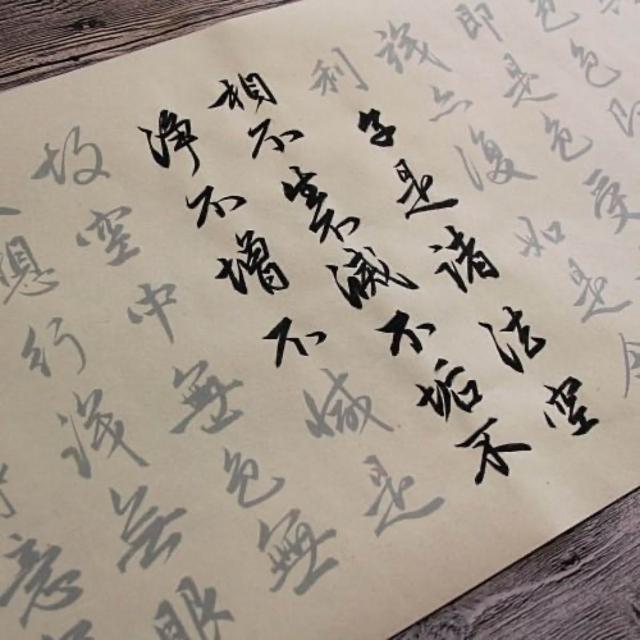 即是色受
識亦復如是
利子是諸法空
相不生不滅不垢不
淨不增不減是
故空中無色無
想行識無眼
意